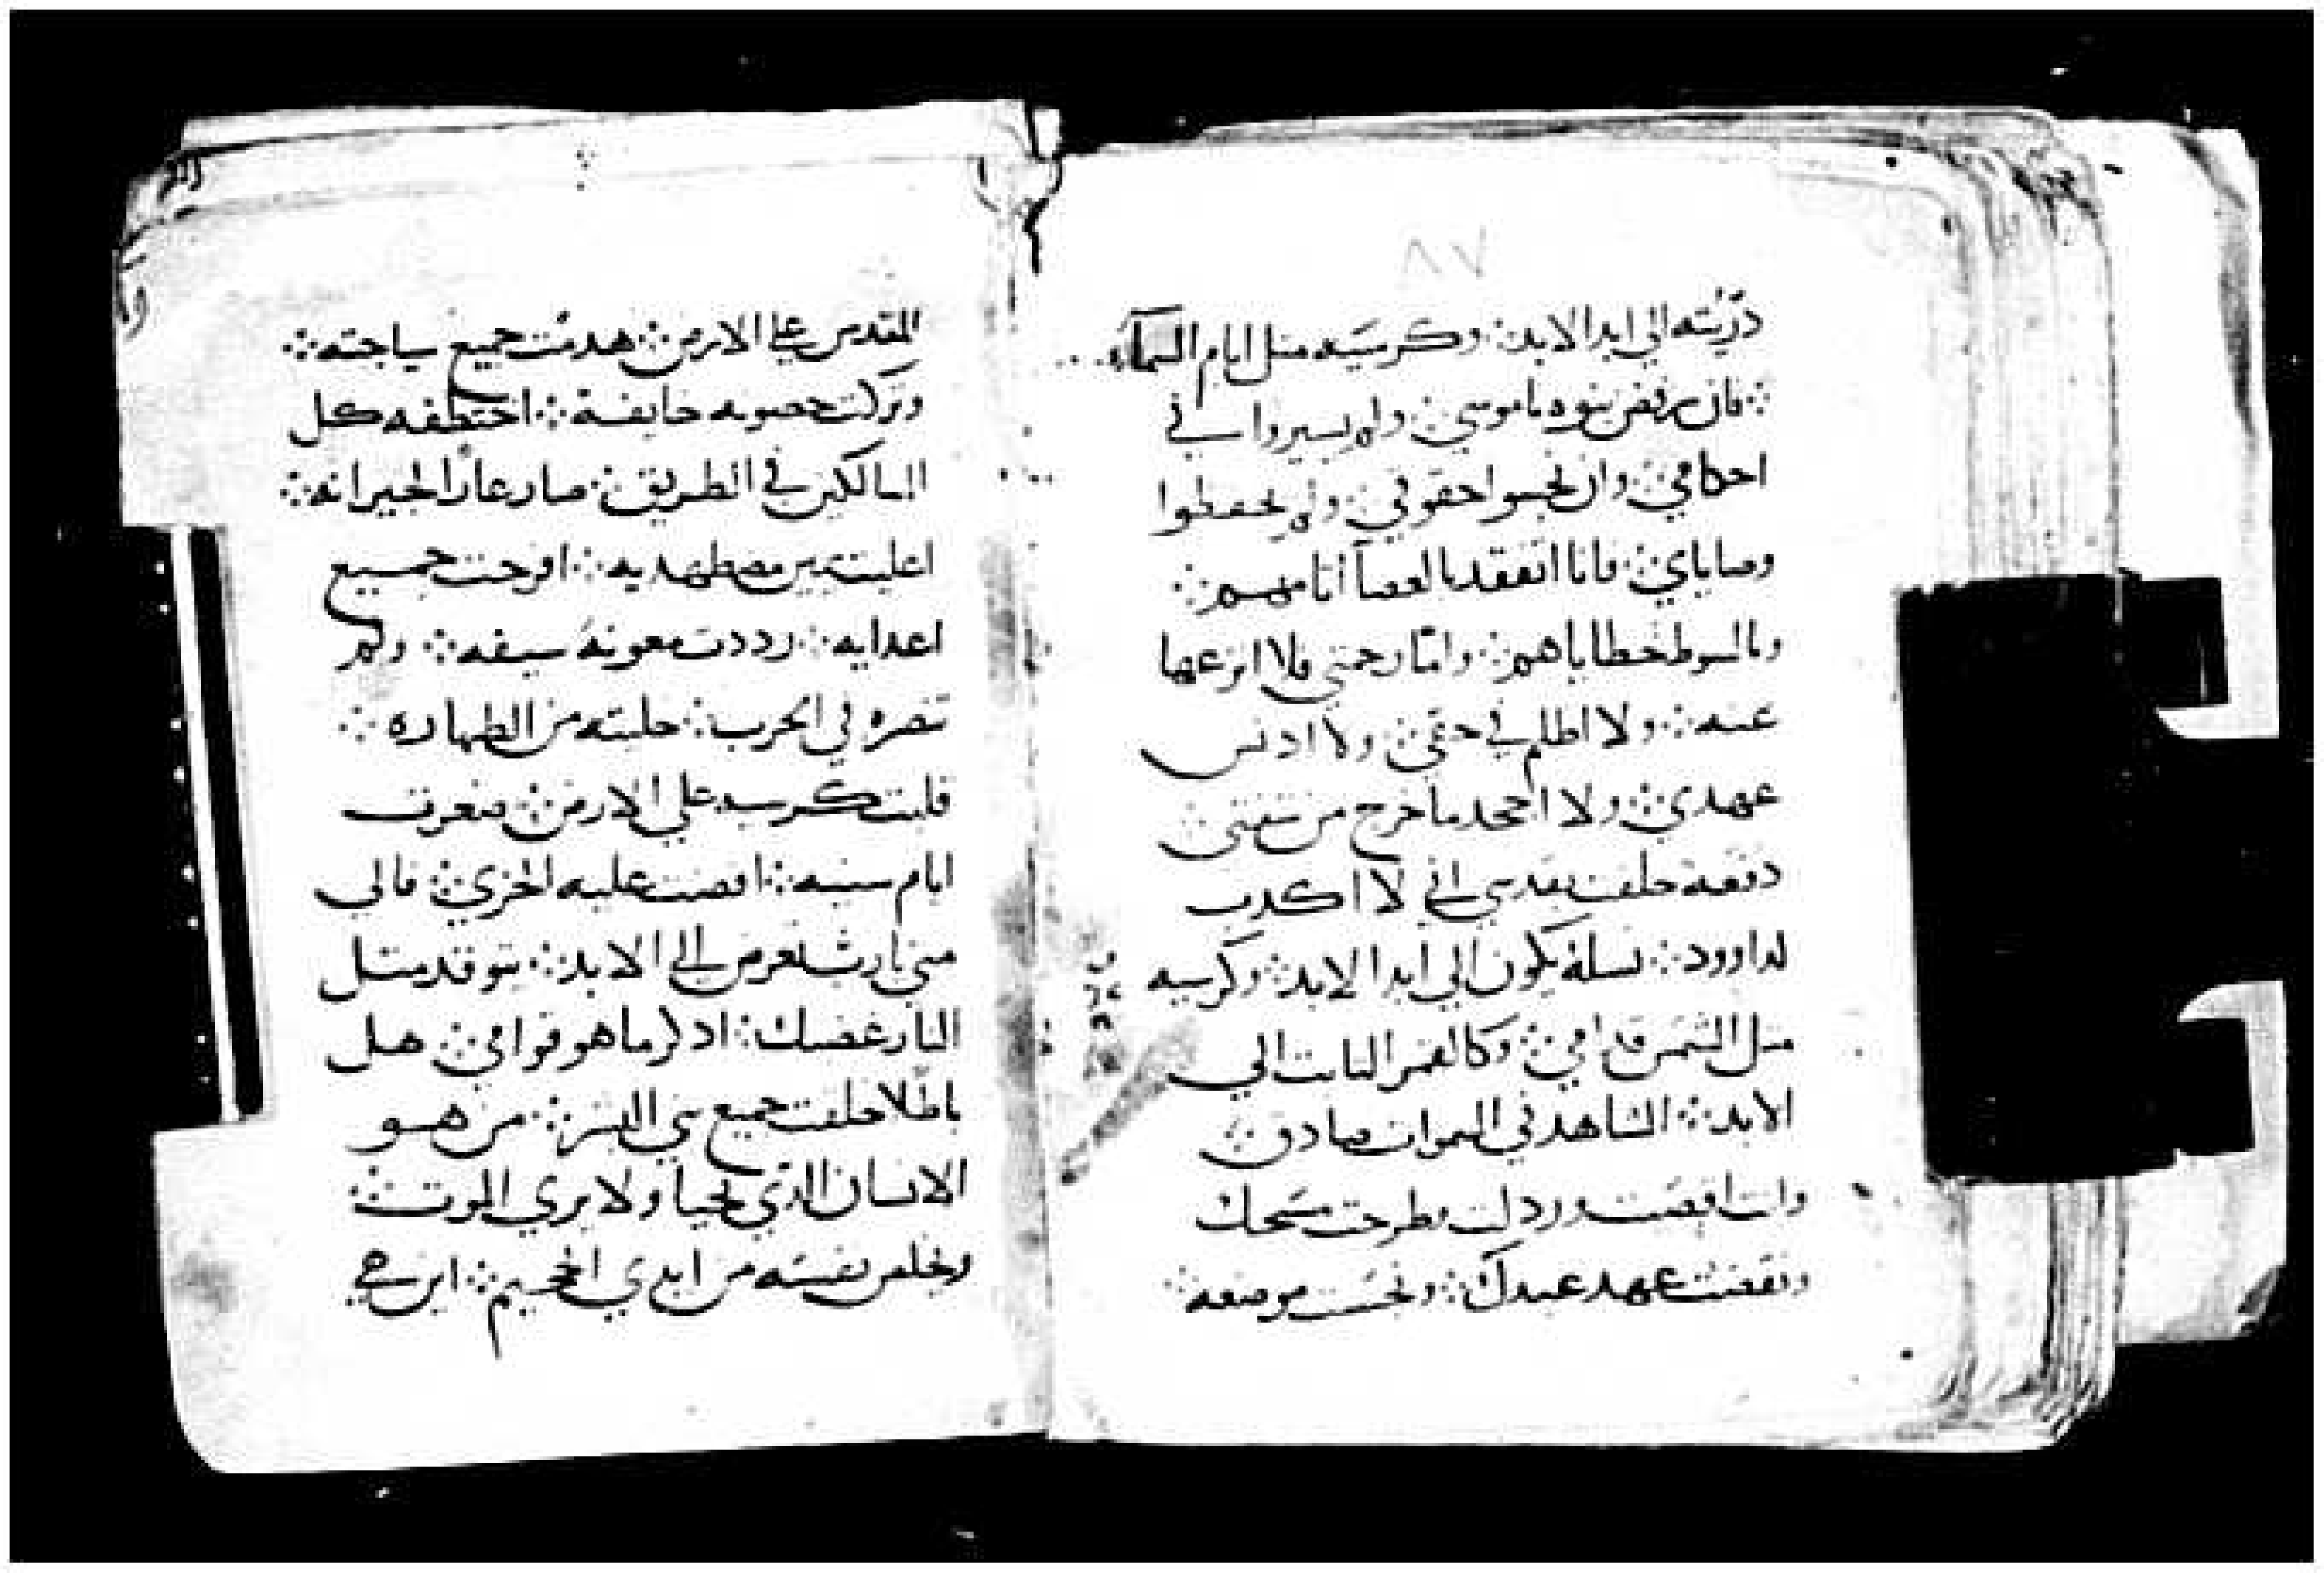 ٨٧
ذرّيته الي ابد الابد ܀ وكرسيه مثل ايام السماء
܀ فان رفض بنوه ناموسي ܀ ولم يسيروا في
احكامي ܀ وان نجسوا حقوقي ܀ ولم يحفظوا
وصاياي ܀ فانا اتفقد بالعصا آثامهم ܀
وبالسوط خطاياهم ܀ وامّا رحمتي فلا انزعها
عنه ܀ ولا اظلم في حقي ܀ ولا ادنس
عهدي ܀ ولا اجحد ما خرج من شفتي ܀
دفعة حلفت بقدسي اني لا اكدب
لداوود ܀ نسله يكون الي ابد الابد ܀ وكرسيه
مثل الشمس قدامي ܀ وكالقمر الثابت الي
الابد ܀ الشاهد في السموات صادق ܀
وانت اقصيت ورذلت وطرحت مسيحك
ونقضت عهد عبدك ܀ ونجست موضعه ܀
المقدس علي الارض ܀ هدمت جميع سياجته ܀
وتركت حصونه خايفة ܀ اختطفه كل
السالكين في الطريق ܀ صار عارًا لجيرانه ܀
اعليت يمين مضطهديه ܀ افرحت جميع
اعدايه ܀ رددت معونة سيفه ܀ ولم
تنصره في الحرب ܀ حليته من الطهاره ܀
قلبت كرسيه علي الارض ܀ صغرت
ايام سنيه ܀ افضت عليه الخزي ܀ فالي
متي يا رب تعرض الي الابد ܀ يتوقد مثل
النار غضبك ܀ ادكر ما هو قوامي ܀ هل
باطلا خلقت جميع بني البشر ܀ من هو
الانسان الذي يحيا ولا يري الموت ܀
ويخلص نفسه من ايدي الجحيم ܀ اين هي